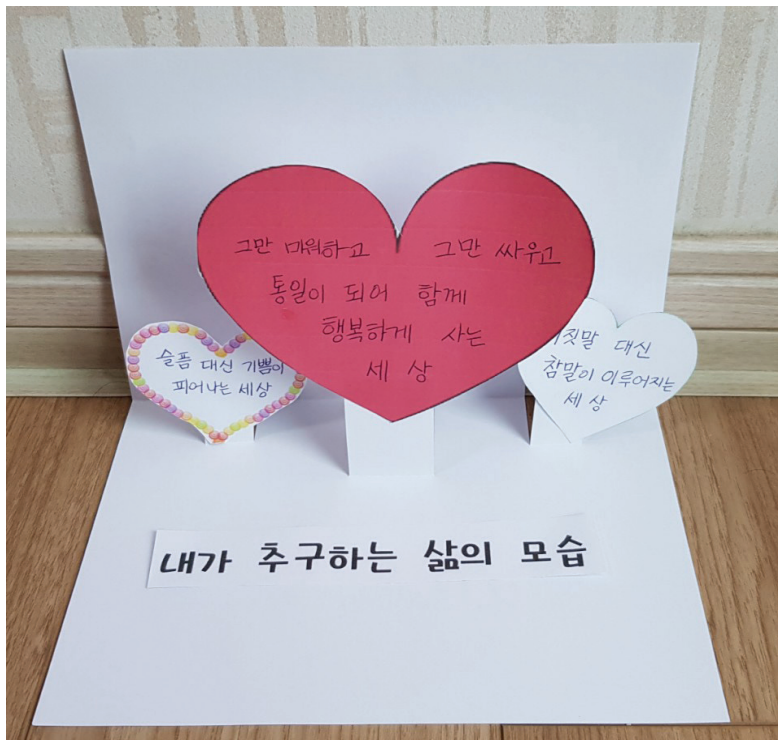 그만 미워하고 그만 싸우고
통일이 되어 함께
행복하게 사는
세상
슬픔 대신 기쁨이
피어나는 세상
대신
참말이 이루어지는
세상
내가 추구하는 삶의 모습